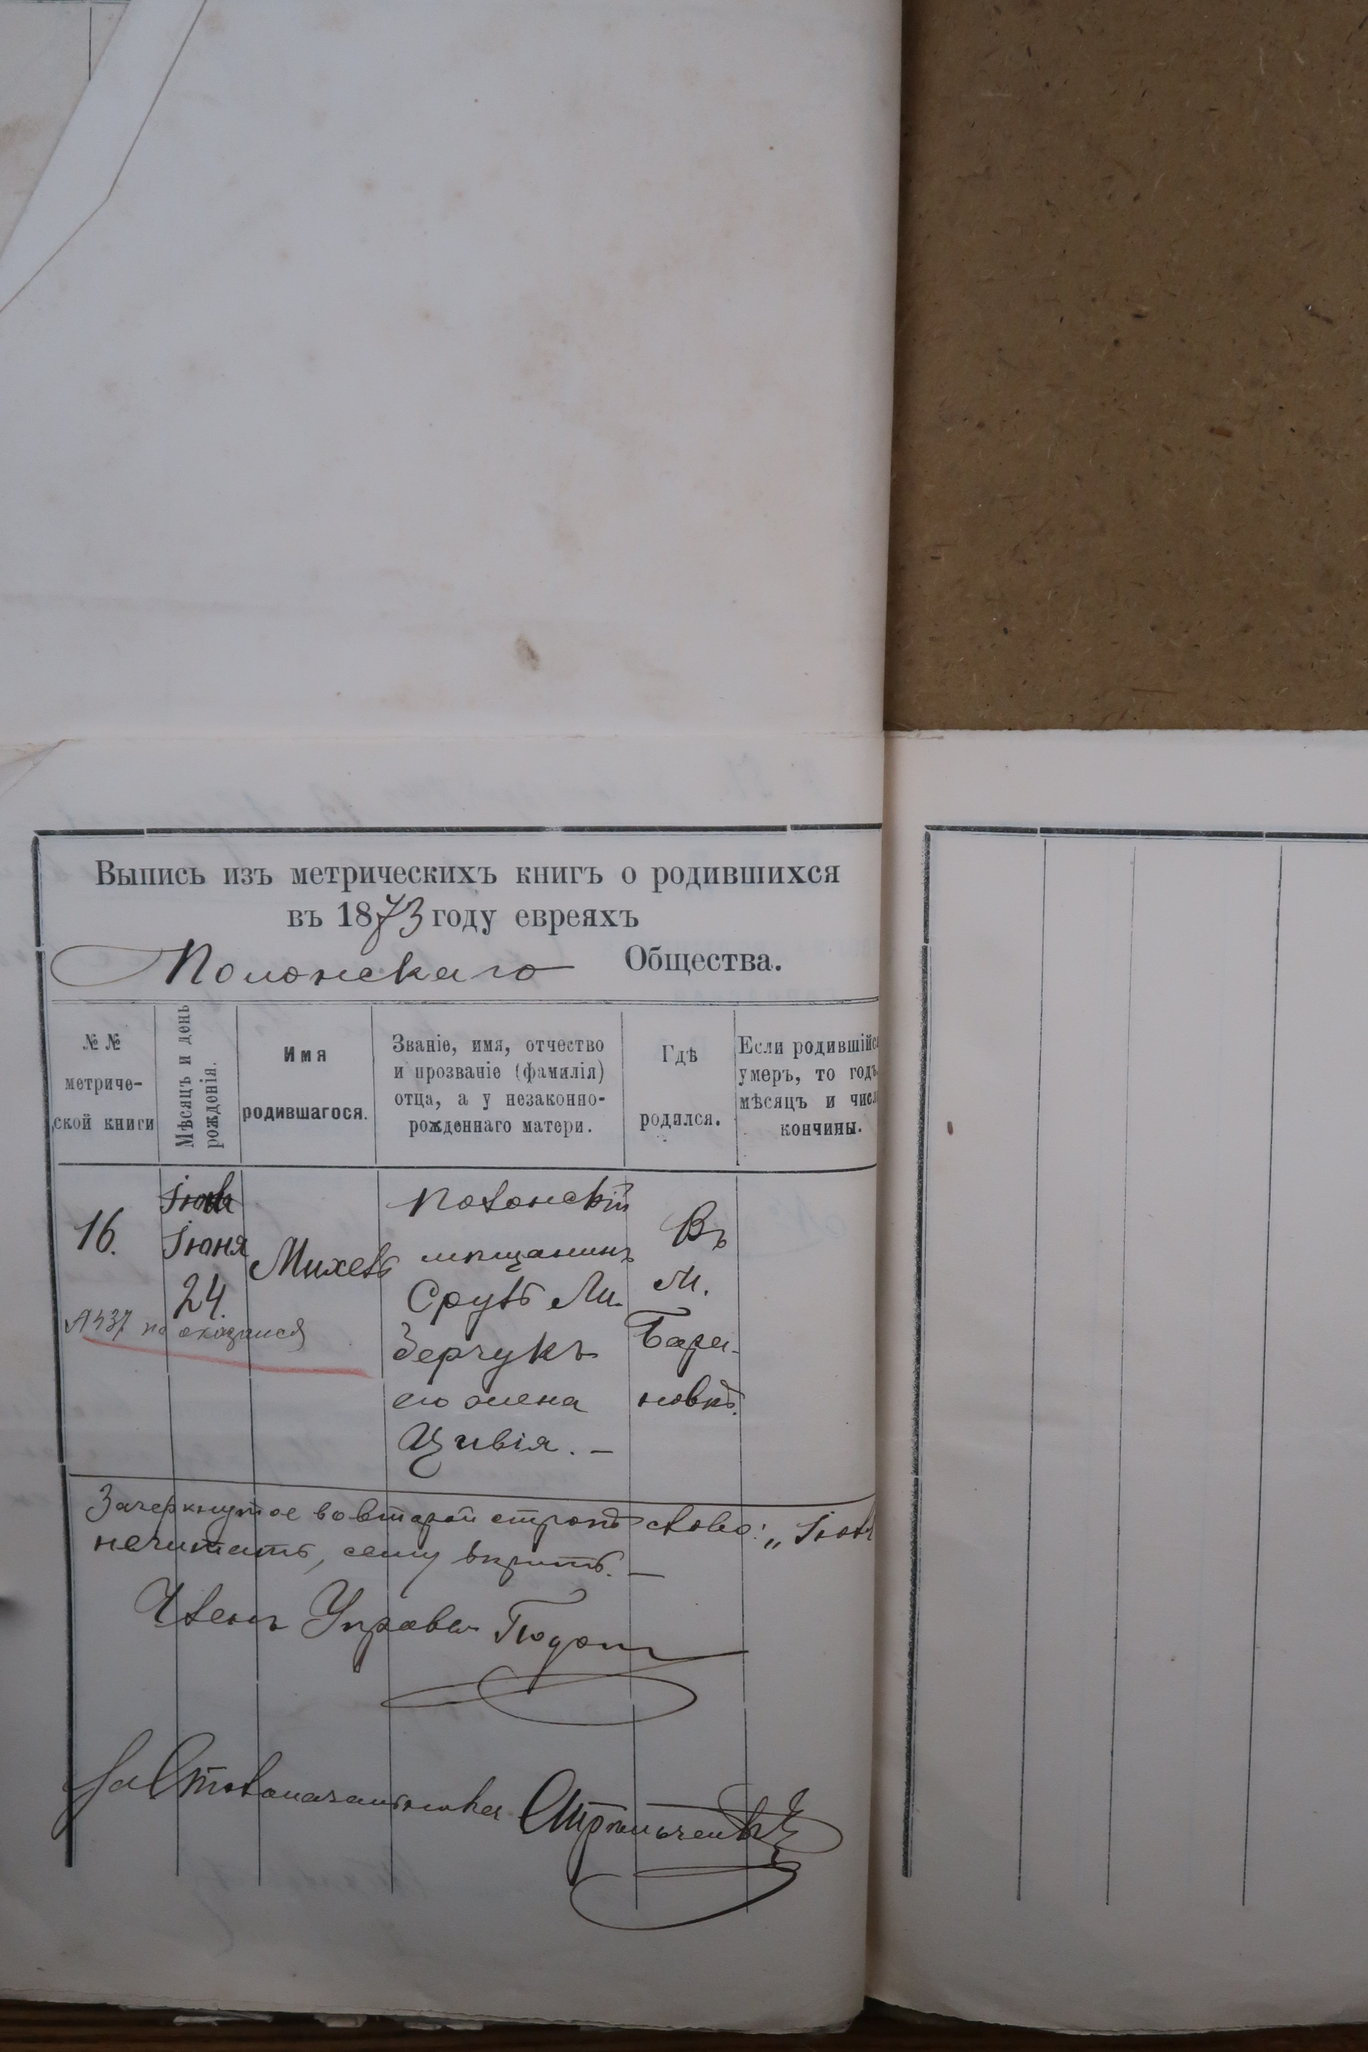 Выпись изъ метрическихъ книгъ о родившихся
въ 1873 году евреяхъ
Полонскаго Общества.
№ №
метриче-
ской книги
Мѣсяцъ и день
рожденія.
Имя
родившагося.
Званіе, имя, отчество
и прозваніе (фамилія)
отца, а у незаконно-
рожденнаго матери.
Гдѣ
родился.
Если родившійс
умеръ, то годъ
мѣсяцъ и числ
кончины.
16.
Іюля
Іюня
24.
Михель
Полонскій
мѣщанинъ
Сруль Ли-
зерчукъ
его жена
Цивія. —
Въ
м.
Бара-
новкѣ.
не оказался
Зачеркнутое во второй строкѣ слово: „Іюл
нечитать, сему вѣрить. —
Членъ Управы
За Столоначальника